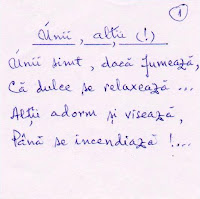 1
Unii, alții (!)
Unii simt, dacă fumează,
Că dulce se relaxează ...
Alții adorm și visează,
Până se incendiază !...